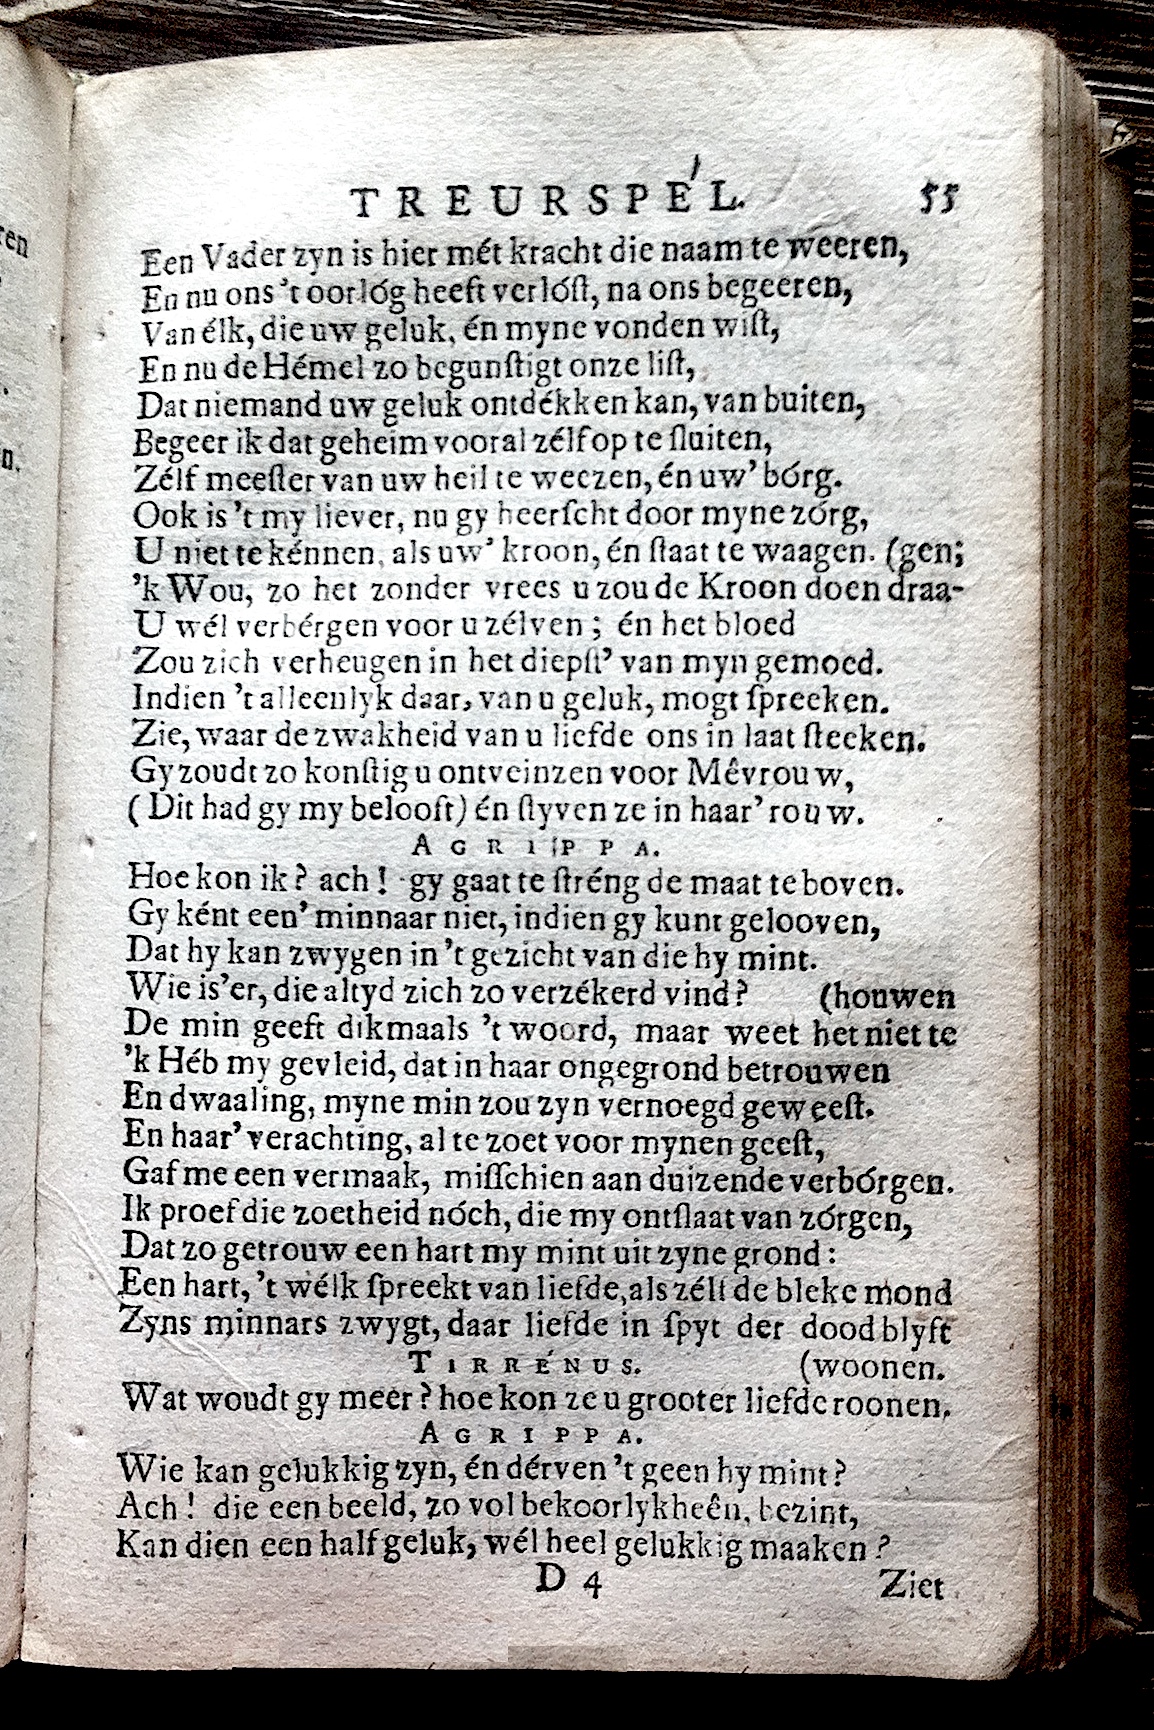 TREURSPÉL. 55
Een Vader zyn is hier mét kracht die naam te weeren,
En nu ons 't oorlóg heeft verlóſt, na ons begeeren,
Van élk, die uw geluk, én myne vonden wiſt,
En nu de Hémel zo begunſtigt onze liſt,
Dat niemand uw geluk ontdékken kan, van buiten,
Begeer ik dat geheim vooral zélf op te ſluiten,
Zélf meeſter van uw heil te weezen, én uw' bórg.
Ook is 't my liever, nu gy heerſcht door myne zórg,
U niet te kénnen, als uw' kroon, én ſtaat te waagen. (gen;
'k Wou, zo het zonder vrees u zou de Kroon doen draa-
U wél verbérgen voor u zélven; én het bloed
Zou zich verheugen in het diepſt' van myn gemoed.
Indien 't alleenlyk daar, van u geluk, mogt ſpreeken.
Zie, waar de zwakheid van u liefde ons in laat ſteeken.
Gy zoudt zo konſtig u ontveinzen voor Mêvrouw,
(Dit had gy my belooft) én ſtyven ze in haar' rouw.
AGRIPPA.
Hoe kon ik? ach! gy gaat te ſtréng de maat te boven.
Gy ként een' minnaar niet, indien gy kunt gelooven,
Dat hy kan zwygen in 't gezicht van die hy mint.
Wie is'er, die altyd zich zo verzékerd vind? (houwen
De min geeft dikmaals 't woord, maar weet het niet te
'k Héb my gevleid, dat in haar ongegrond betrouwen
En dwaaling, myne min zou zyn vernoegd geweeſt.
En haar' verachting, al te zoet voor mynen geeſt,
Gaf me een vermaak, miſſchien aan duizende verbórgen.
Ik proef die zoetheid nóch, die my ontſlaat van zórgen,
Dat zo getrouw een hart my mint uit zyne grond:
Een hart, 't wélk ſpreekt van liefde, als zélf de bleke mond
Zyns minnars zwygt, daar liefde in ſpyt der dood blyft
TIRRÉNUS. (woonen.
Wat woudt gy meer? hoe kon ze u grooter liefde toonen.
AGRIPPA.
Wie kan gelukkig zyn, én dérven 't geen hy mint?
Ach! die een beeld, zo vol bekoorlykheên, bezint,
Kan dien een half geluk, wél heel gelukkig maaken?
D 4 Ziet